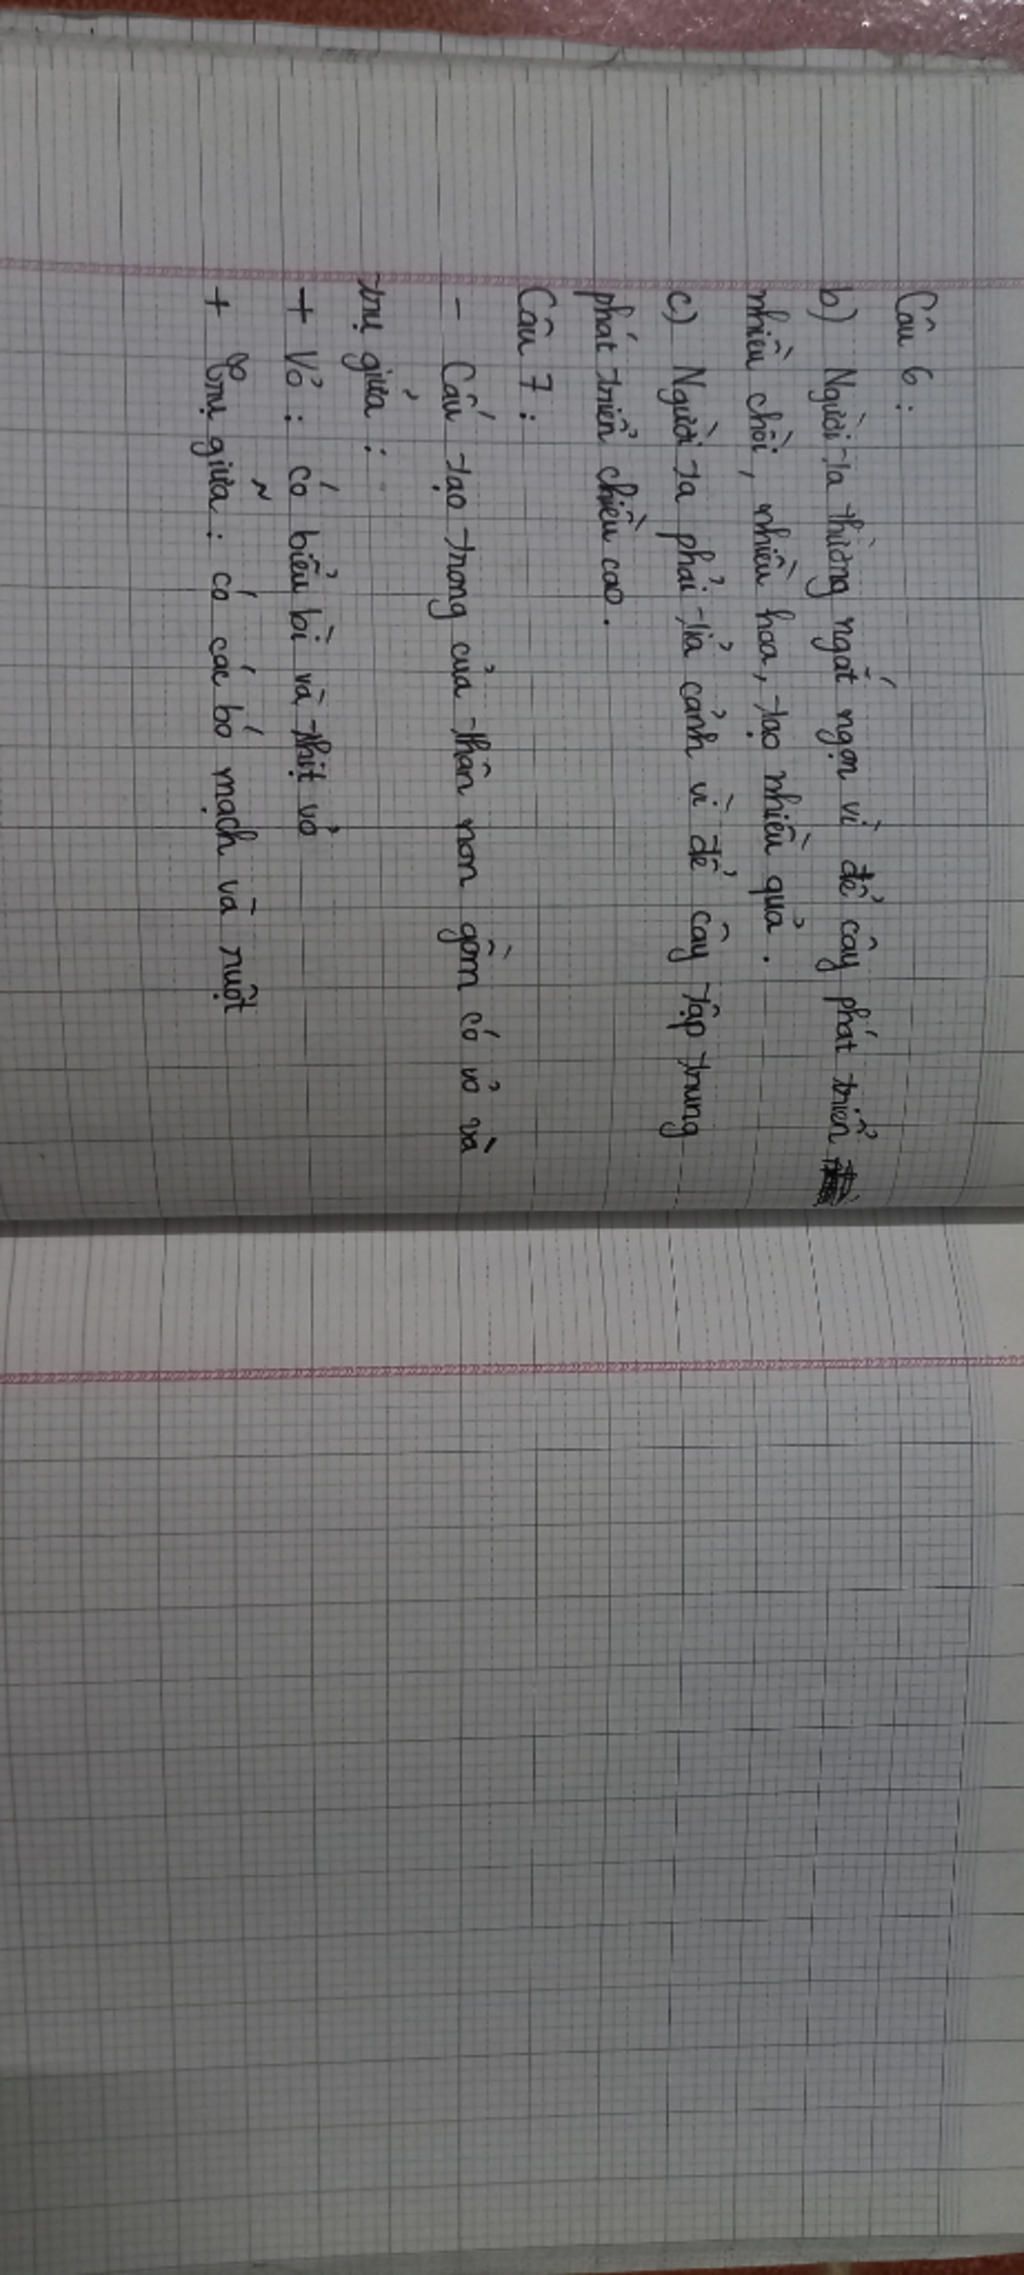 Câu 6 :
b) Người ta thường ngắt ngọn vì để cây phát triển
nhiều chồi, nhiều hoa, tạo nhiều quả .
c) Người ta phải tỉa cành vì để cây tập trung
phát triển chiều cao .
Câu 7 :
- Cấu tạo trong của thân non gồm có vỏ và
trụ giửa :
+ Vỏ : có biểu bì và thịt vỏ
+ Trụ giữa : có các bó mạch và ruột